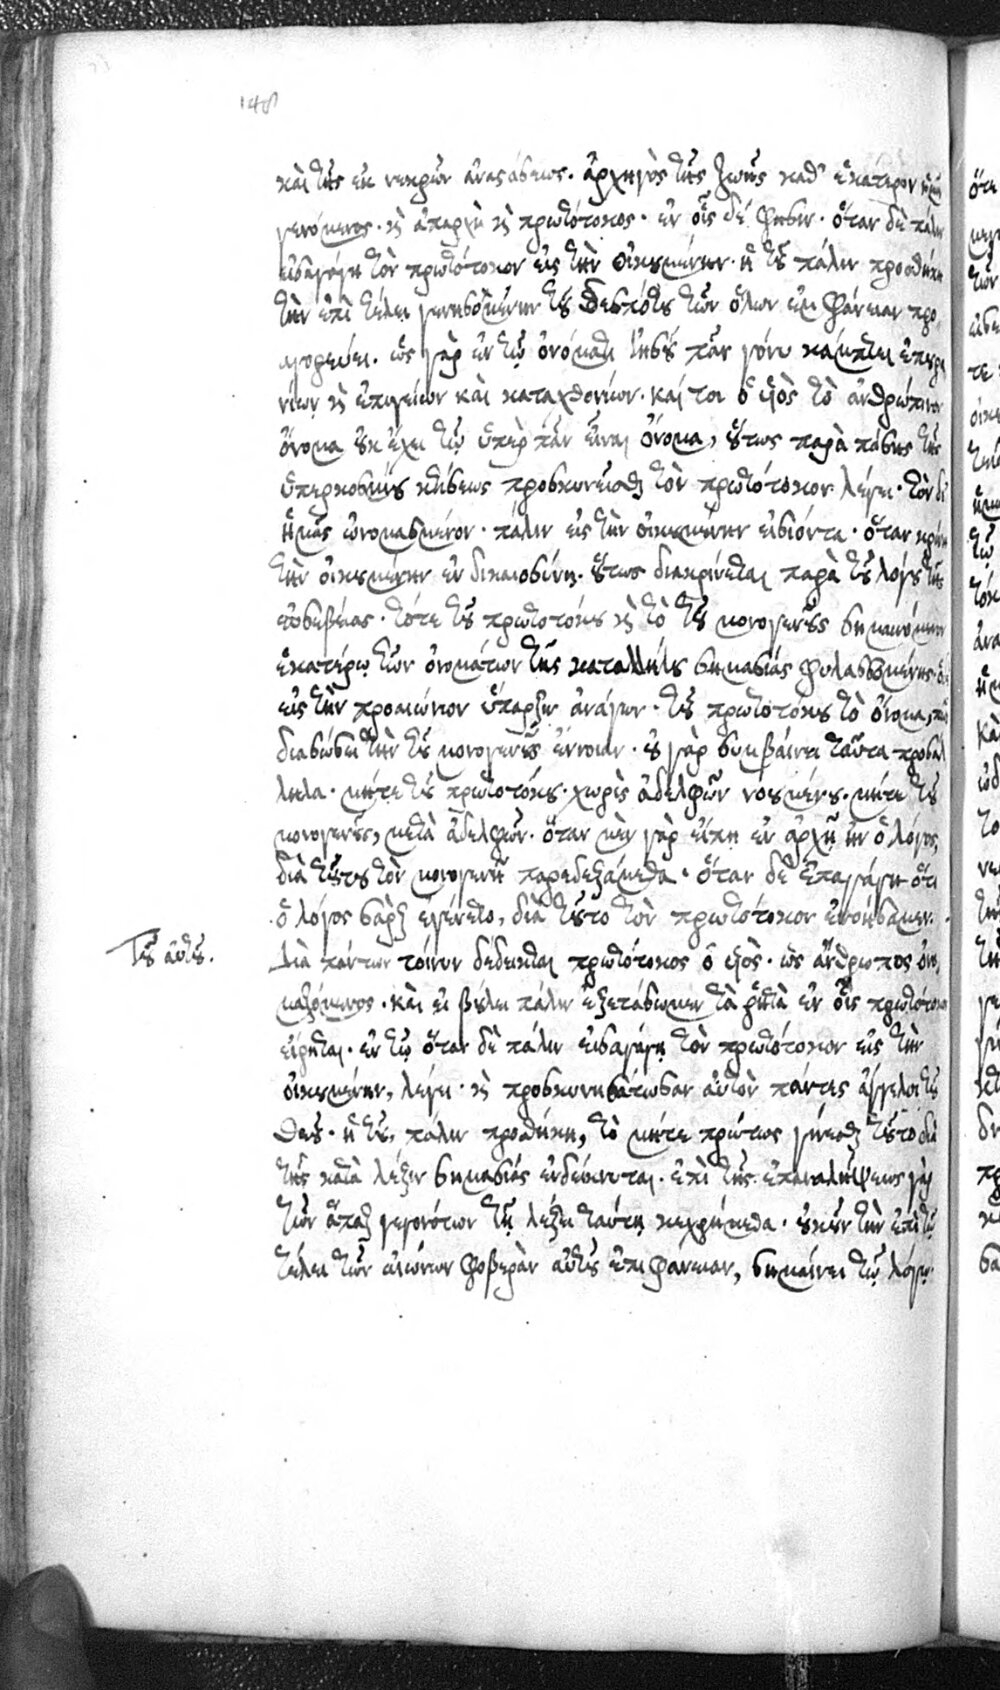 148
καὶ τῆς ἐκ νεκρῶν ἀναστάσεως. ἀρχηγὸς τῆς ζωῆς καθ' ἑκάτερον ἡμῖν
γενόμενος. κ ἀπαρχὴ κ πρωτότοκος. ἐν οἷς δέ φησιν. ὅταν δὲ πάλιν
εἰσαγάγῃ τὸν πρωτότοκον εἰς τὴν οἰκουμένην. ἡ τοῦ πάλιν προσθήκη
τὴν ἐπὶ τέλει γενησομένην τοῦ δεσπότου τῶν ὅλων ἐπιφάνειαν προ
αγορεύει. ὡς γὰρ ἐν τῷ ὀνόματι ἰησοῦ πᾶν γόνυ κάμπτει ἐπουρα
νίων κ ἐπιγείων καὶ καταχθονίων. καί τοι ὁ υἱὸς τὸ ἀνθρώπινον
ὄνομα οὐκ ἔχει τῷ ὑπὲρ πᾶν εἶναι ὄνομα, οὕτως παρὰ πάσης τῆς
ὑπερκοσμίου κτίσεως προσκυνεῖσθαι τὸν πρωτότοκον λέγει. τὸν δι'
ἡμᾶς ὠνομασμένον. πάλιν εἰς τὴν οἰκουμένην εἰσιόντα. ὅταν κρίνῃ
τὴν οἰκουμένην ἐν δικαιοσύνῃ. οὕτως διακρίνεται παρὰ τοῦ λόγου τῆς
εὐσεβείας. τότε τοῦ πρωτοτόκου κ τὸ τοῦ μονογενοῦς σημαινόμενον
ἑκατέρῳ τῶν ὀνομάτων τῆς καταλλήλου σημασίας φυλασσομένης.
εἰς τὴν προαιώνιον ὕπαρξιν ἀνάγων. τοῦ πρωτοτόκου τὸ ὄνομα, πῶς
διασώσει τὴν τοῦ μονογενοῦς ἔννοιαν. οὐ γὰρ συμβαίνει ταῦτα προσάλ
ληλα. μήτε τοῦ πρωτοτόκου. χωρὶς ἀδελφῶν νοουμένου. μήτε τοῦ
μονογενοῦς, μετὰ ἀδελφῶν. ὅταν μὲν γὰρ εἴπῃ ἐν ἀρχῇ ἦν ὁ λόγος,
διὰ τούτου τὸν μονογενῆ παρεδεξάμεθα. ὅταν δὲ ἐπαγάγῃ ὅτι
ὁ λόγος σὰρξ ἐγένετο, διὰ τοῦτο τὸν πρωτότοκον ἐνοήσαμεν.
Τοῦ αὐτοῦ.
Διὰ πάντων τοίνυν δέδεικται πρωτότοκος ὁ υἱὸς. ὡς ἄνθρωπος ὀνο
μαζόμενος. καὶ εἰ βούλει πάλιν ἐξετάσωμεν τὰ ῥητὰ ἐν οἷς πρωτότοκος
εἴρηται. ἐν τῷ ὅταν δὲ πάλιν εἰσαγάγῃ τὸν πρωτότοκον εἰς τὴν
οἰκουμένην, λέγει. κ προσκυνησάτωσαν αὐτὸν πάντες ἄγγελοι τοῦ
θεοῦ. ἡ τοῦ, πάλιν προσθήκη, τὸ μήτε πρώτως γίνεσθαι τοῦτο διὰ
τῆς κατὰ λέξιν σημασίας ἐνδείκνυται. ἐπὶ τῆς ἐπαναλήψεως γὰρ
τῶν ἅπαξ γεγονότων τῇ λέξει ταύτῃ κεχρήμεθα. οὐκοῦν τὴν ἐπὶ τῷ
τέλει τῶν αἰώνων φοβερὰν αὐτοῦ ἐπιφάνειαν, σημαίνει τῷ λόγῳ.